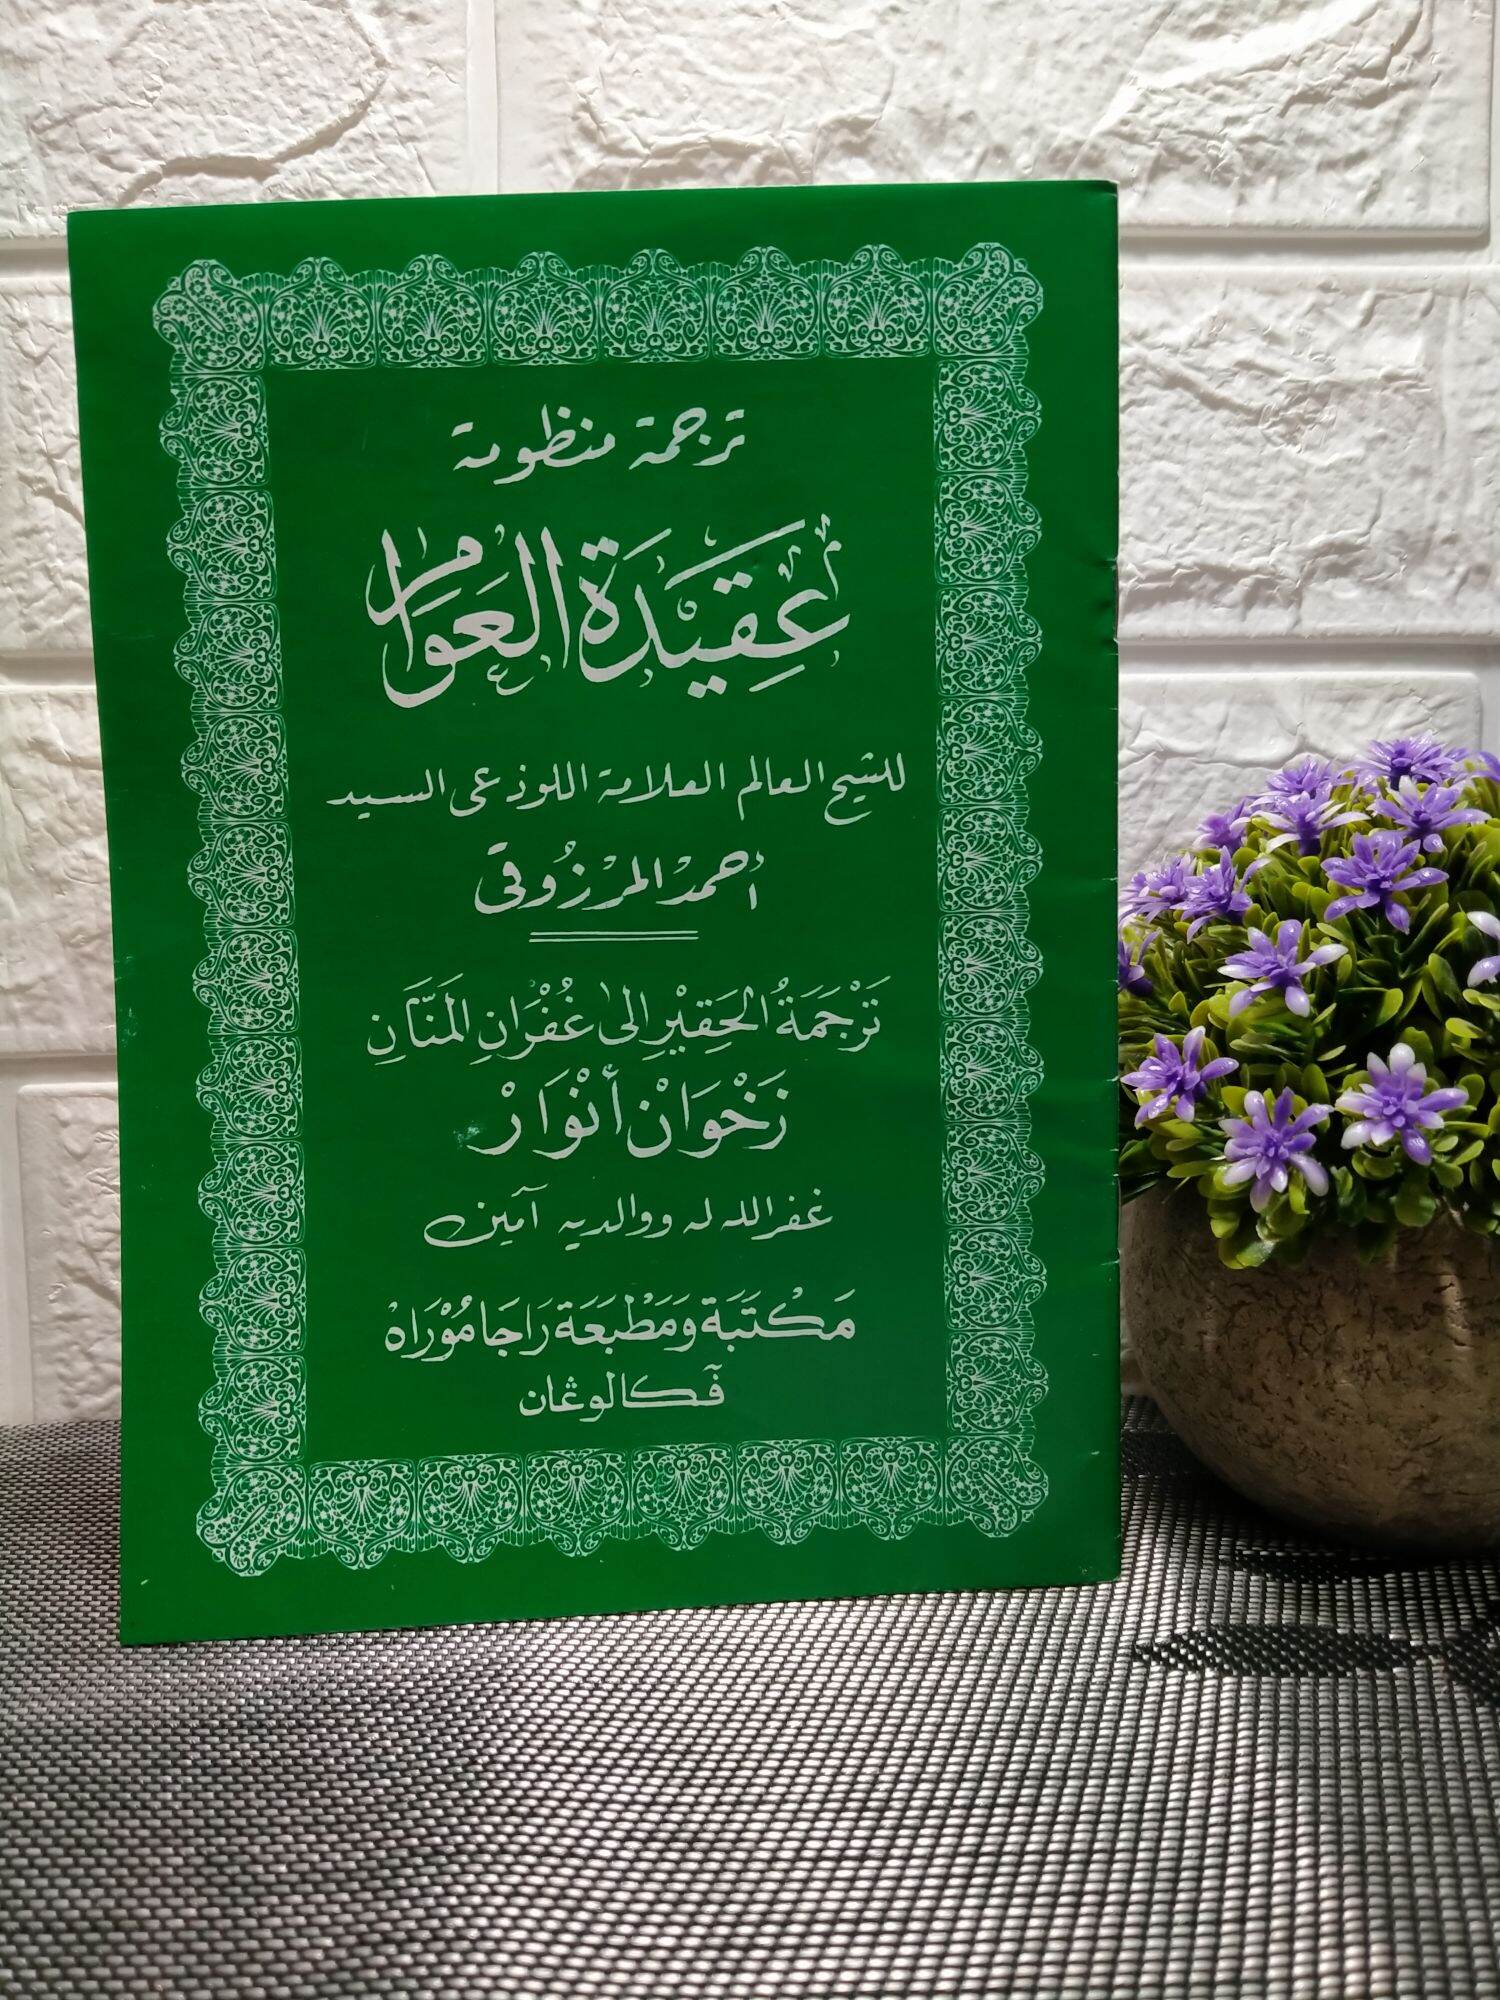 ترجمة منظومة
عَقِيْدَةُ الْعَوَام
للشيخ العالم العلامة اللوذعى السيد
أحمدْ المرْزُوقى
تَرْجَمَةُ الحَقِيْرِ إلىٰ غُفْرَانِ المَنَّانِ
زَخْوَانْ أَنْوَارْ
غفر الله له ووالديه آمين
مَكْتَبَة وَمَطْبَعَة رَاجَا مُوْرَاهْ
ڤكالوڠان